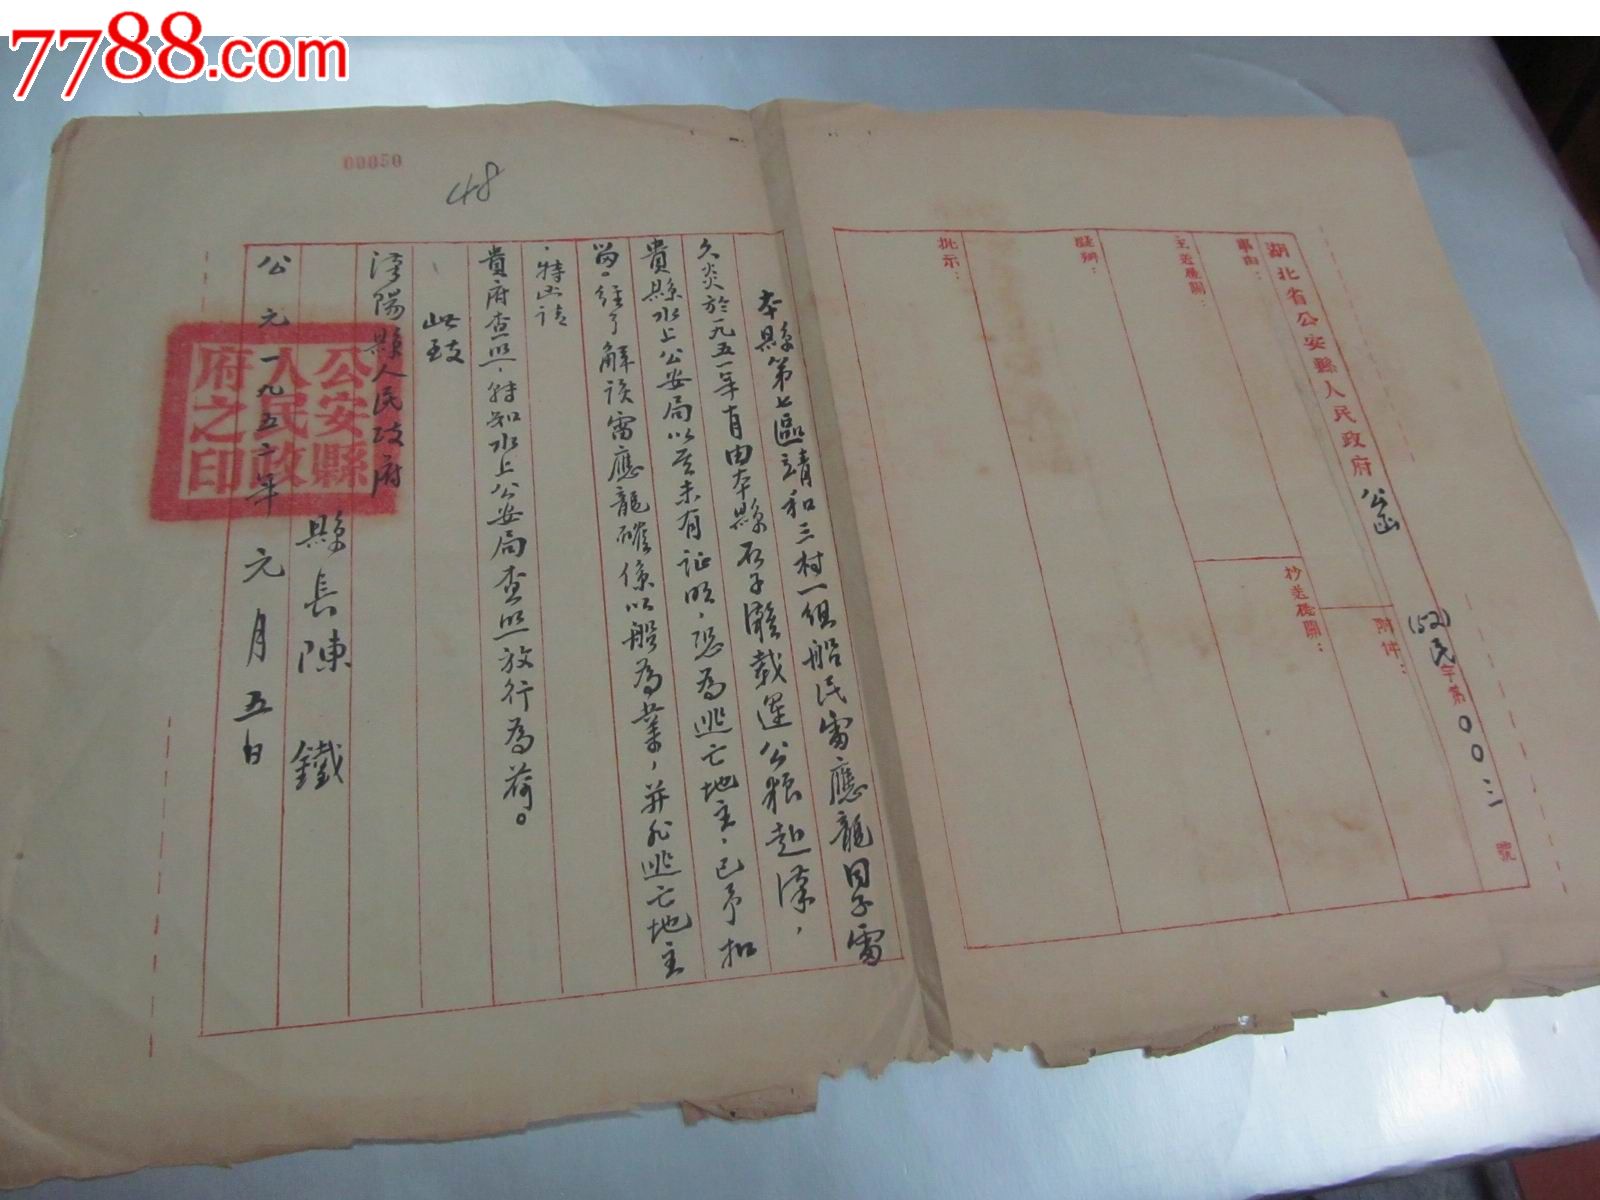 7788.com
00050
48
湖北省公安縣人民政府公函
(52)民字第00三號
附件：
事由：
抄送機關：
主送機關：
擬辦：
批示：
本縣第七區靖和三村一組船民雷應龍因子雷
久炎於一九五一年 月由本縣石子灘載運公糧赴漢，
貴縣水上公安局以其未有证明，恐為逃亡地主，已予扣
留。経了解该雷應龍確係以船為業，并非逃亡地主
，特函请
貴府查照，转知水上公安局查照放行為荷。
此致
漢陽縣人民政府
縣長陳鐵
公元一九五二年元月五日
公安縣人民政府之印